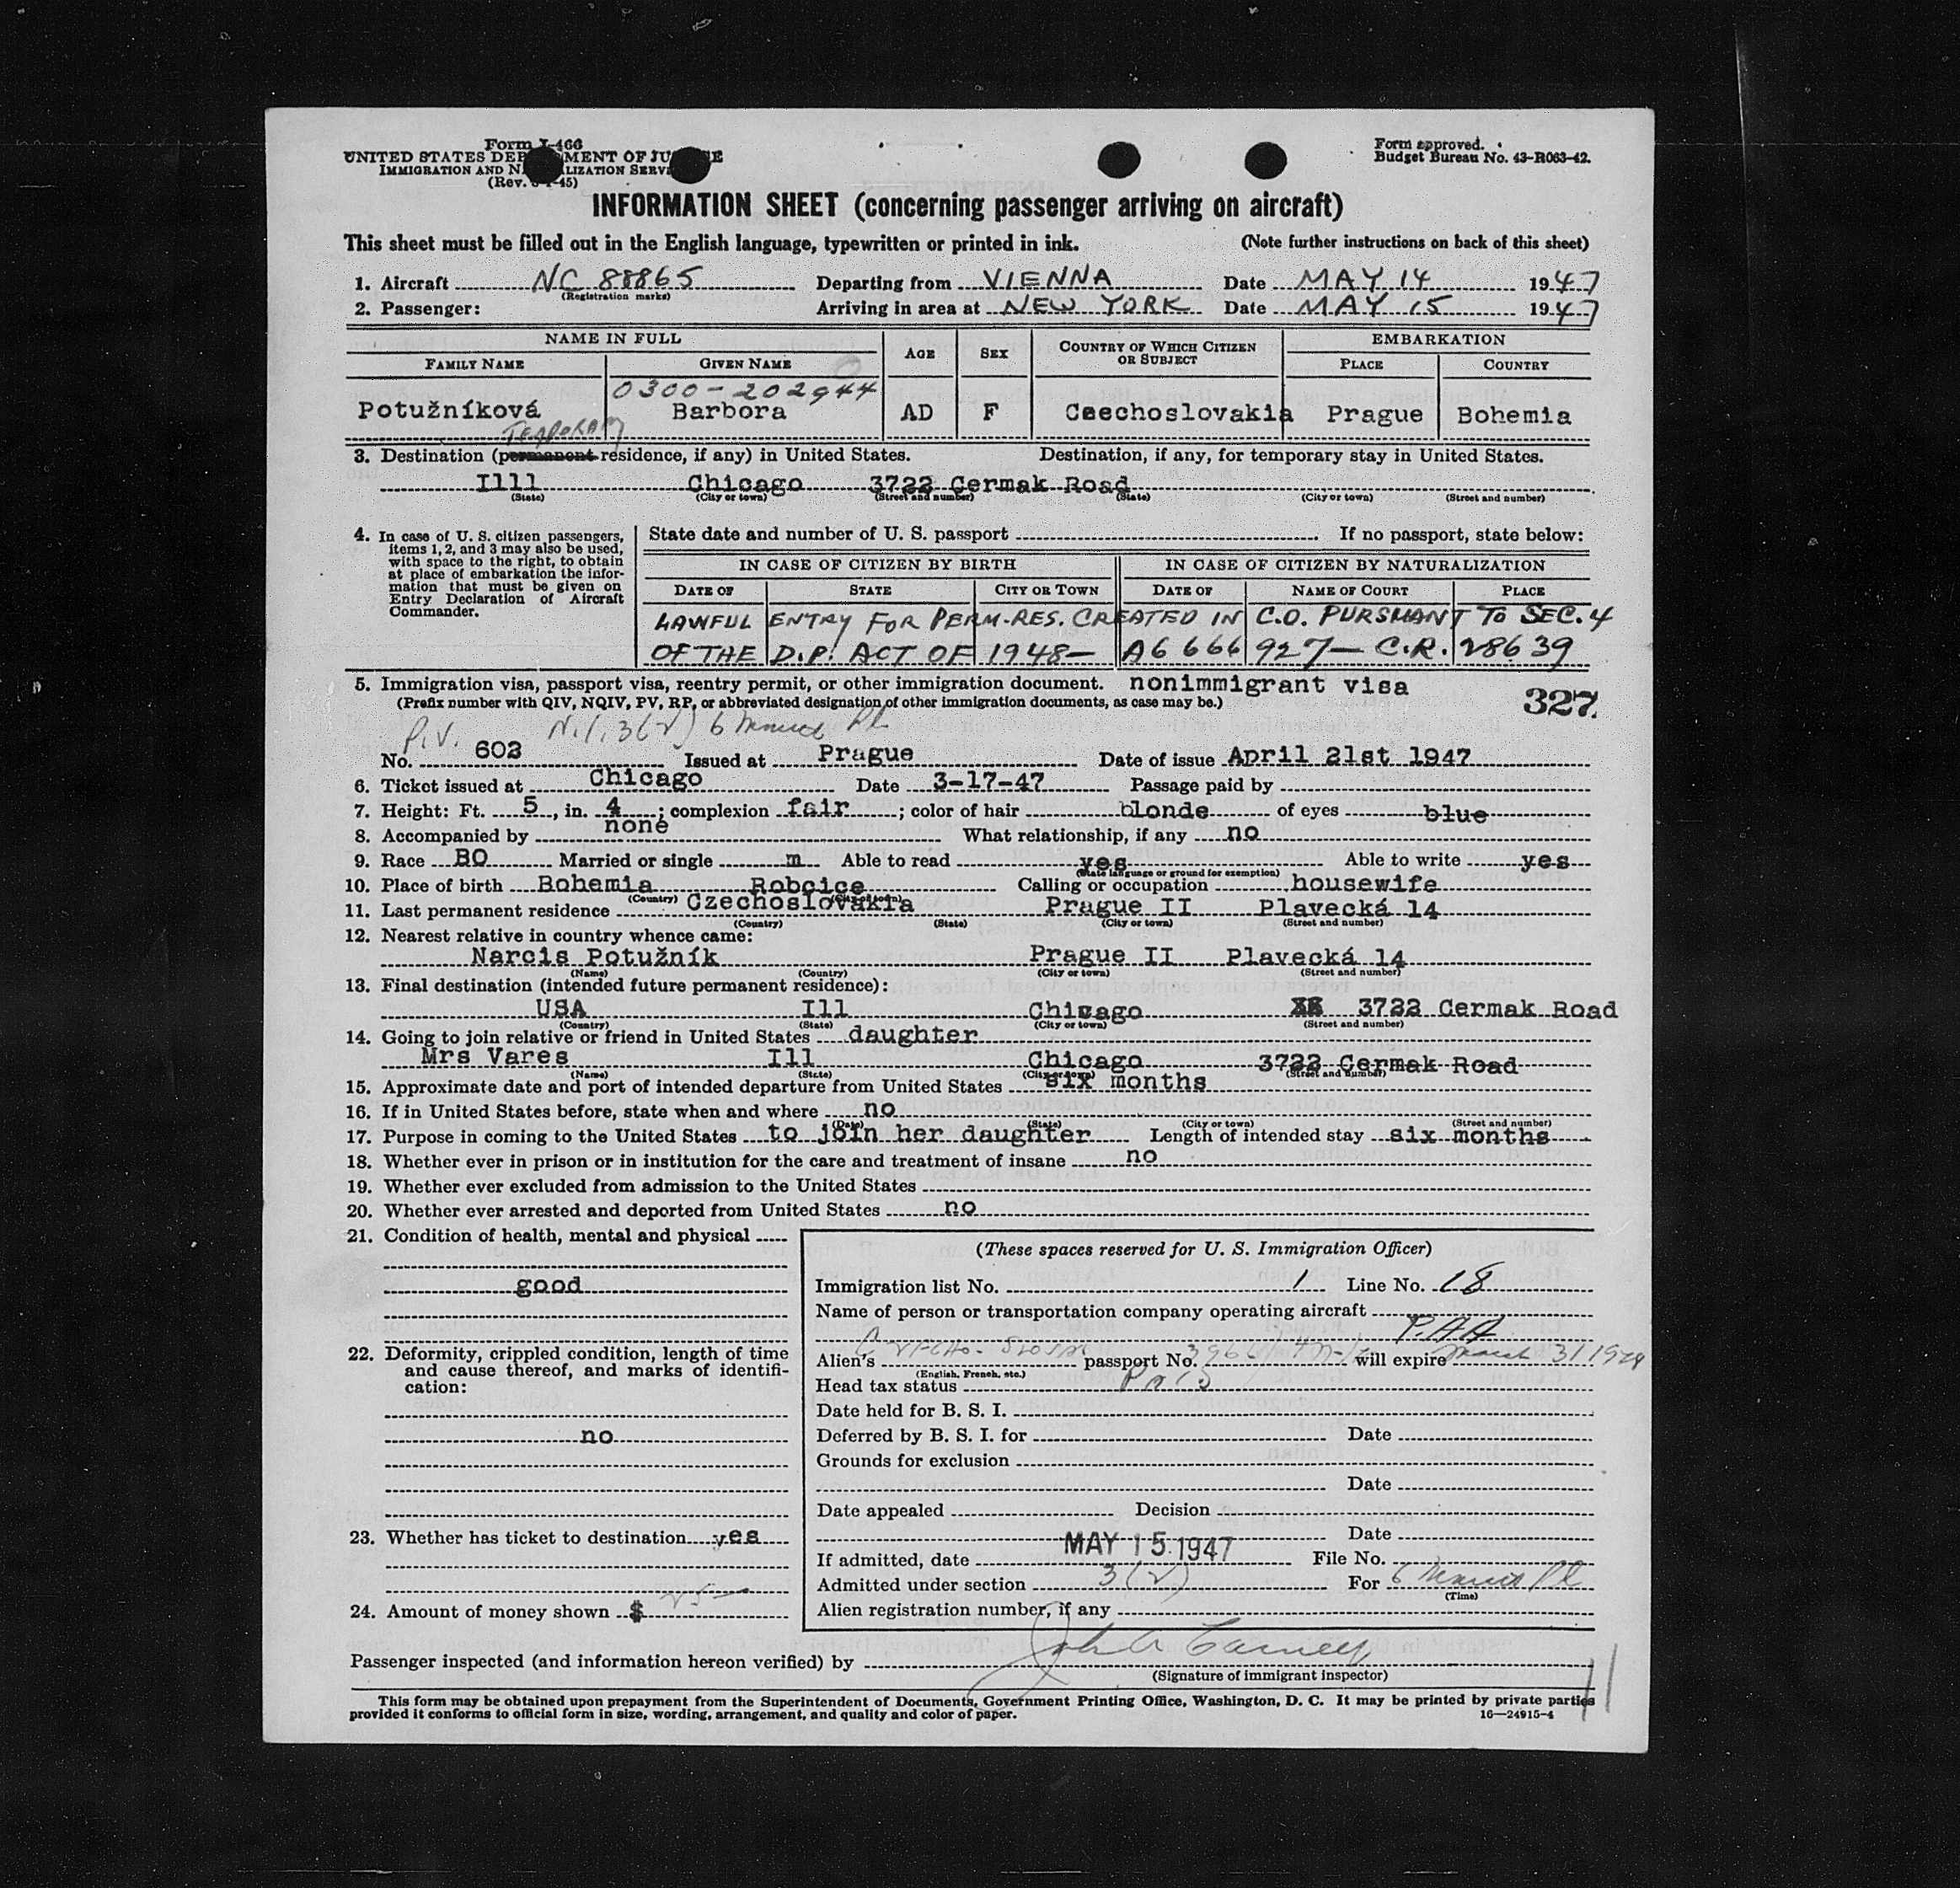 Form I-466
UNITED STATES DEPARTMENT OF JUSTICE
IMMIGRATION AND NATURALIZATION SERVICE
(Rev. -45)
Form approved.
Budget Bureau No. 43-R063-42.
INFORMATION SHEET (concerning passenger arriving on aircraft)
This sheet must be filled out in the English language, typewritten or printed in ink. (Note further instructions on back of this sheet)
1. Aircraft NC 88865 Departing from VIENNA Date MAY 14 1947
(Registration marks)
2. Passenger: Arriving in area at NEW YORK Date MAY 15 1947
NAME IN FULL AGE SEX COUNTRY OF WHICH CITIZEN OR SUBJECT EMBARKATION
FAMILY NAME GIVEN NAME PLACE COUNTRY
0300-202944
Potužníková Barbora AD F Czechoslovakia Prague Bohemia
TEMPORARY
3. Destination (permanent residence, if any) in United States. Destination, if any, for temporary stay in United States.
Illl Chicago 3722 Cermak Road
(State) (City or town) (Street and number) (State) (City or town) (Street and number)
4. In case of U. S. citizen passengers, items 1, 2, and 3 may also be used, with space to the right, to obtain at place of embarkation the information that must be given on Entry Declaration of Aircraft Commander.
State date and number of U. S. passport If no passport, state below:
IN CASE OF CITIZEN BY BIRTH IN CASE OF CITIZEN BY NATURALIZATION
DATE OF STATE CITY OR TOWN DATE OF NAME OF COURT PLACE
LAWFUL ENTRY FOR PERM-RES. CREATED IN C.O. PURSMANT TO SEC. 4
OF THE D.P. ACT OF 1948- A6 666 927- C.R. 28639
5. Immigration visa, passport visa, reentry permit, or other immigration document. nonimmigrant visa
(Prefix number with QIV, NQIV, PV, RP, or abbreviated designation of other immigration documents, as case may be.) 327.
P.V. 3(2) 6
No. 602 Issued at Prague Date of issue April 21st 1947
6. Ticket issued at Chicago Date 3-17-47 Passage paid by
7. Height: Ft. 5, in. 4; complexion fair; color of hair blonde of eyes blue
8. Accompanied by none What relationship, if any no
9. Race BO Married or single m Able to read yes Able to write yes
(State language or ground for exemption)
10. Place of birth Bohemia Robcice Calling or occupation housewife
(Country) (City or town)
11. Last permanent residence Czechoslovakia Prague II Plavecká 14
(Country) (State) (City or town) (Street and number)
12. Nearest relative in country whence came:
Narcis Potužník Prague II Plavecká 14
(Name) (Country) (City or town) (Street and number)
13. Final destination (intended future permanent residence):
USA Ill Chicago 3722 Cermak Road
(Country) (State) (City or town) (Street and number)
14. Going to join relative or friend in United States daughter
Mrs Vares Ill Chicago 3722 Cermak Road
(Name) (State) (City or town) (Street and number)
15. Approximate date and port of intended departure from United States six months
16. If in United States before, state when and where no
(Date) (State) (City or town) (Street and number)
17. Purpose in coming to the United States to join her daughter Length of intended stay six months
18. Whether ever in prison or in institution for the care and treatment of insane no
19. Whether ever excluded from admission to the United States
20. Whether ever arrested and deported from United States no
21. Condition of health, mental and physical
good
22. Deformity, crippled condition, length of time and cause thereof, and marks of identification:
no
23. Whether has ticket to destination yes
24. Amount of money shown $ 25
(These spaces reserved for U. S. Immigration Officer)
Immigration list No. 1 Line No. 18
Name of person or transportation company operating aircraft
P.A.A
Alien's passport No. will expire March 31
(English, French, etc.)
Head tax status Paid
Date held for B. S. I.
Deferred by B. S. I. for Date
Grounds for exclusion
Date
Date appealed Decision
Date
If admitted, date MAY 15 1947 File No.
Admitted under section 3(2) For 6
(Time)
Alien registration number, if any
Passenger inspected (and information hereon verified) by
(Signature of immigrant inspector)
This form may be obtained upon prepayment from the Superintendent of Documents, Government Printing Office, Washington, D. C. It may be printed by private parties
provided it conforms to official form in size, wording, arrangement, and quality and color of paper. 16—24915-4